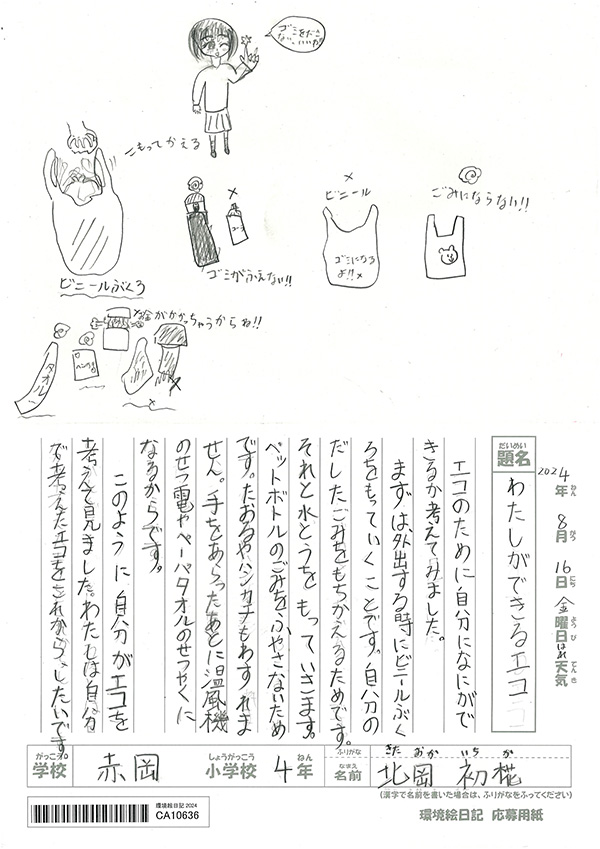 ゴミをださ
ない。いいね
こもってかえる
ビニールぶくろ
ゴミがふえない!!
ビニール
ゴミになる
よ!!
ごみにならない!!
がかかっちゃうからね!!
タオル
2024年 8月 16日 金曜日 はれ天気
ねん がつ にち ようび てんき
だいめい
題名
わたしができるエコ
エコのために自分になにがで
きるか考えてみました。
まずは、外出する時にビニールぶく
ろをもっていくことです。自分の
だしたごみをもちかえるためです。
それと水とうをもっていきます。
ペットボトルのごみをふやさないため
です。たおるやハンカチもわすれま
せん。手をあらったあとに温風機
のせつ電やペーパタオルのせつやくに
なるからです。
このように自分がエコを
考えて見ました。わたしは自分
で考えたエコをこれから、したいです。
がっこう しょうがっこう ねん
学校 赤岡 小学校 4年
ふりがな きたおか いちか
なまえ
名前 北岡 初椛
(漢字で名前を書いた場合は、ふりがなをふってください)
環境絵日記2024
CA10636
環境絵日記 応募用紙